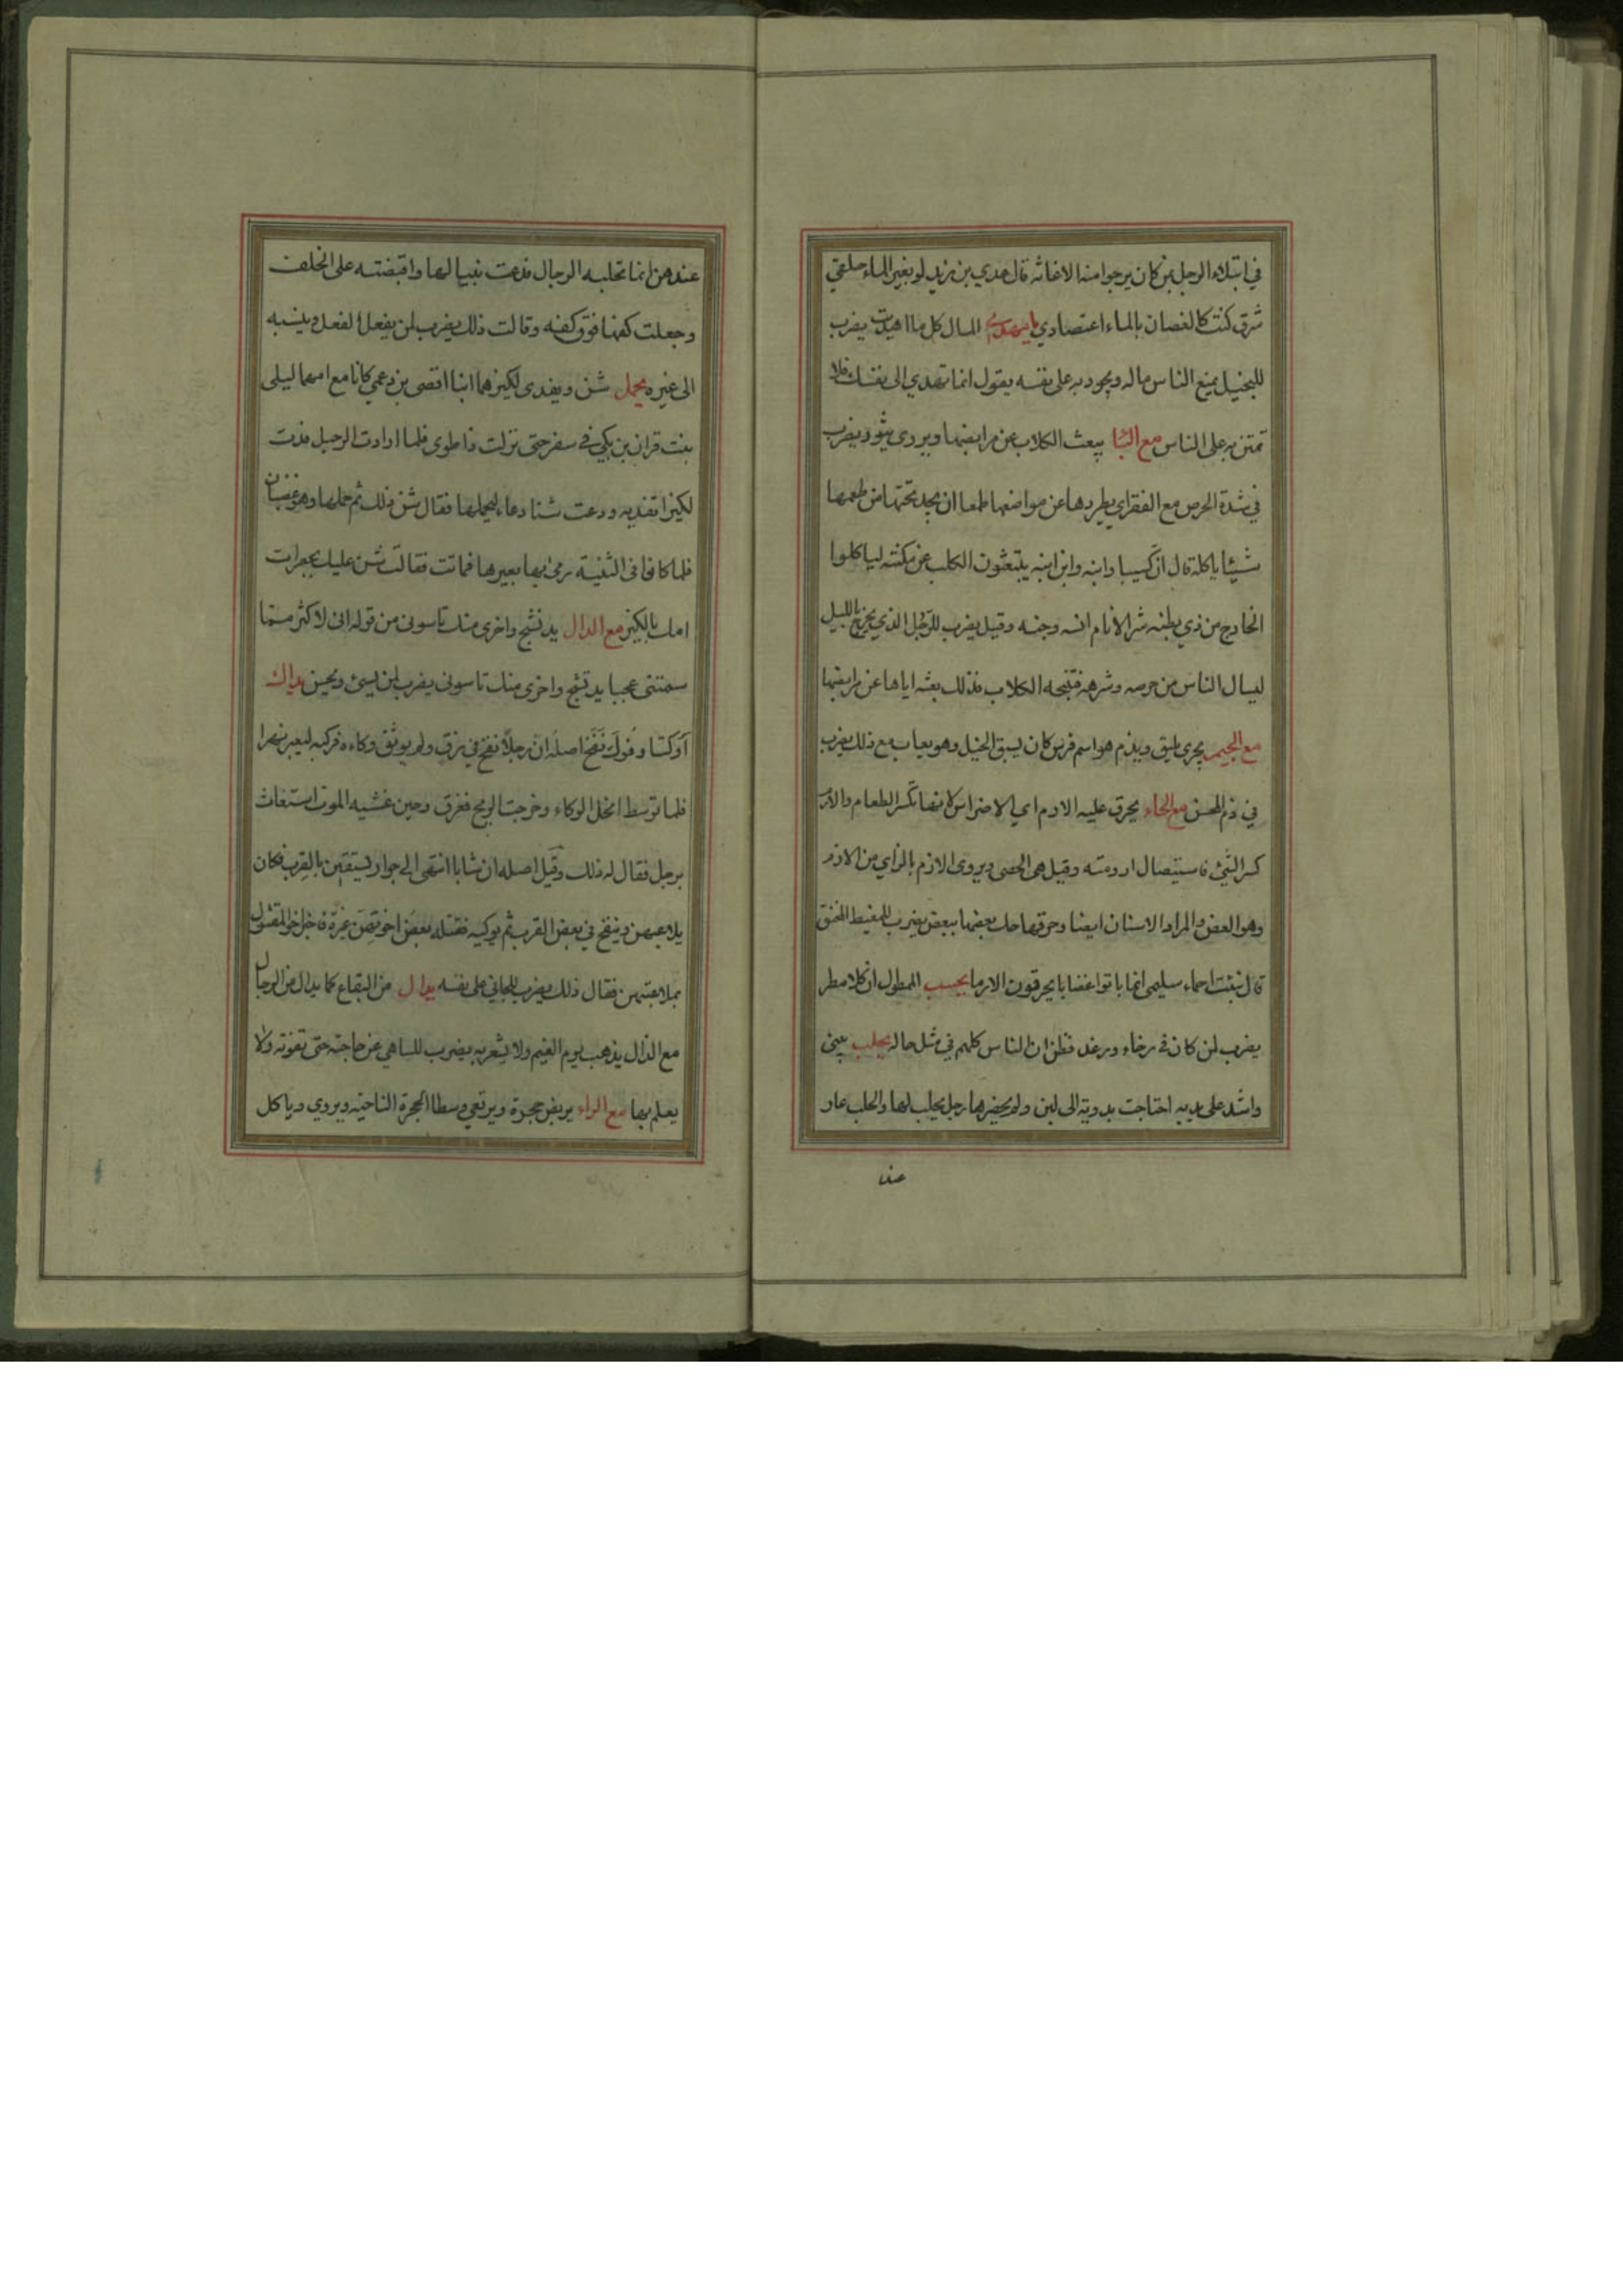 في ابتلاء الرجل بمن كان يرجوا منه الاغاثه قال عدي بن زيد لو بغير الماء حلقي
شرق كنت كالغصان بالماء اعتصاري يا مهدي المال كل ما اهديت يضرب
للبخيل يمنع الناس ماله ويجود به على نفسه يقول انما تهدي الى نفسك فلا
تمتن به على الناس مع البا يبعث الكلاب عن مرابضها ويروى يثور يضرب
في شدة الحرص مع الفقر اي يطردها عن مواضعها طمعا ان يجد تحتها من طعمها
شيئا ياكله قال ان كسيبا وابنه وابن ابنه يبتعثون الكلب عن مكنته لياكلوا
الخارج من ذي بطنه شر الانام انسه وجنه وقيل يضرب للرجل الذي يخرج بالليل
ليسال الناس من حرصه وشرهه فتنبحه الكلاب فذلك بعثه اياها عن مرابضها
مع الجيم يجرى بليق ويذم هو اسم فرس كان يسبق الخيل وهو يعاب مع ذلك يضرب
في ذم المحسن مع الحاء يحرق عليه الارم اي الاضراس لانها تكسر الطعام والارم
كسر الشئ فاستيصال ارومته وقيل هى الحصى ويروى الازم بالزاي من الازم
وهو العض والمراد الاسنان ايضا وحرقها حك بعضها ببعض يضرب للمغيظ المحنق
قال نبئت احماء سليمى انما باتوا غضابا يحرقون الارما يحسب الممطول ان كلا مطر
يضرب لمن كان في رخاء ورغد فظن ان الناس كلهم في مثل حاله يحلب بنى
واشد على يديه احتاجت بدوية الى لبن ولم يحضرها رجل يحلب لها والحلب عار
عند
عندهن انما تحلبه الرجال فدعت بنيا لها واقبضته على الخلف
وجعلت كفها فوق كفه وقالت ذلك يضرب لمن يفعل الفعل وينسبه
الى غيره يحمل شن ويفدى لكيز هما ابنا افصى بن دعمي كانا مع امهما ليلى
بنت قران بن بكي في سفر حتى نزلت ذا طوى فلما ارادت الرحيل فدت
لكيزا تفديه ودعت شنا دعاء ليحملها فقال شن ذلك ثم حملها وهو غضبان
فلما كانا فى الثنية رمى بها بعيرها فماتت فقالت شن عليك بجعرات
امك يا لكيز مع الدال يد تشج واخرى منك تاسونى من قوله انى لاكثر مما
سمتنى عجبا يد تشج واخرى منك تاسونى يضرب لمن يسئ ويحسن يداك
اوكتا وفوك نفخ اصله ان رجلا نفخ في زق ولم يوثق وكاءه فركبه ليعبر نهرا
فلما توسط انحل الوكاء وخرجت الريح فغرق وحين غشيه الموت استغاث
برجل فقال له ذلك وقيل اصله ان شابا انتهى الى جوار يستقين بالقرب فكان
يلاعبهن وينفخ في بعض القرب ثم يوكيه فقتله بعض اخوتهن غيرة فاخبر اخو المقتول
بملاعبتهن فقال ذلك يضرب للجاني على نفسه يدال من البقاع كما يدال من الرجال
مع الذال يذهب يوم الغيم ولا يشعر به يضرب للساهي عن حاجته حتى تفوته ولا
يعلم بها مع الراء يربض حجرة ويرتعي وسطا الحجرة الناحيه ويروي وياكل